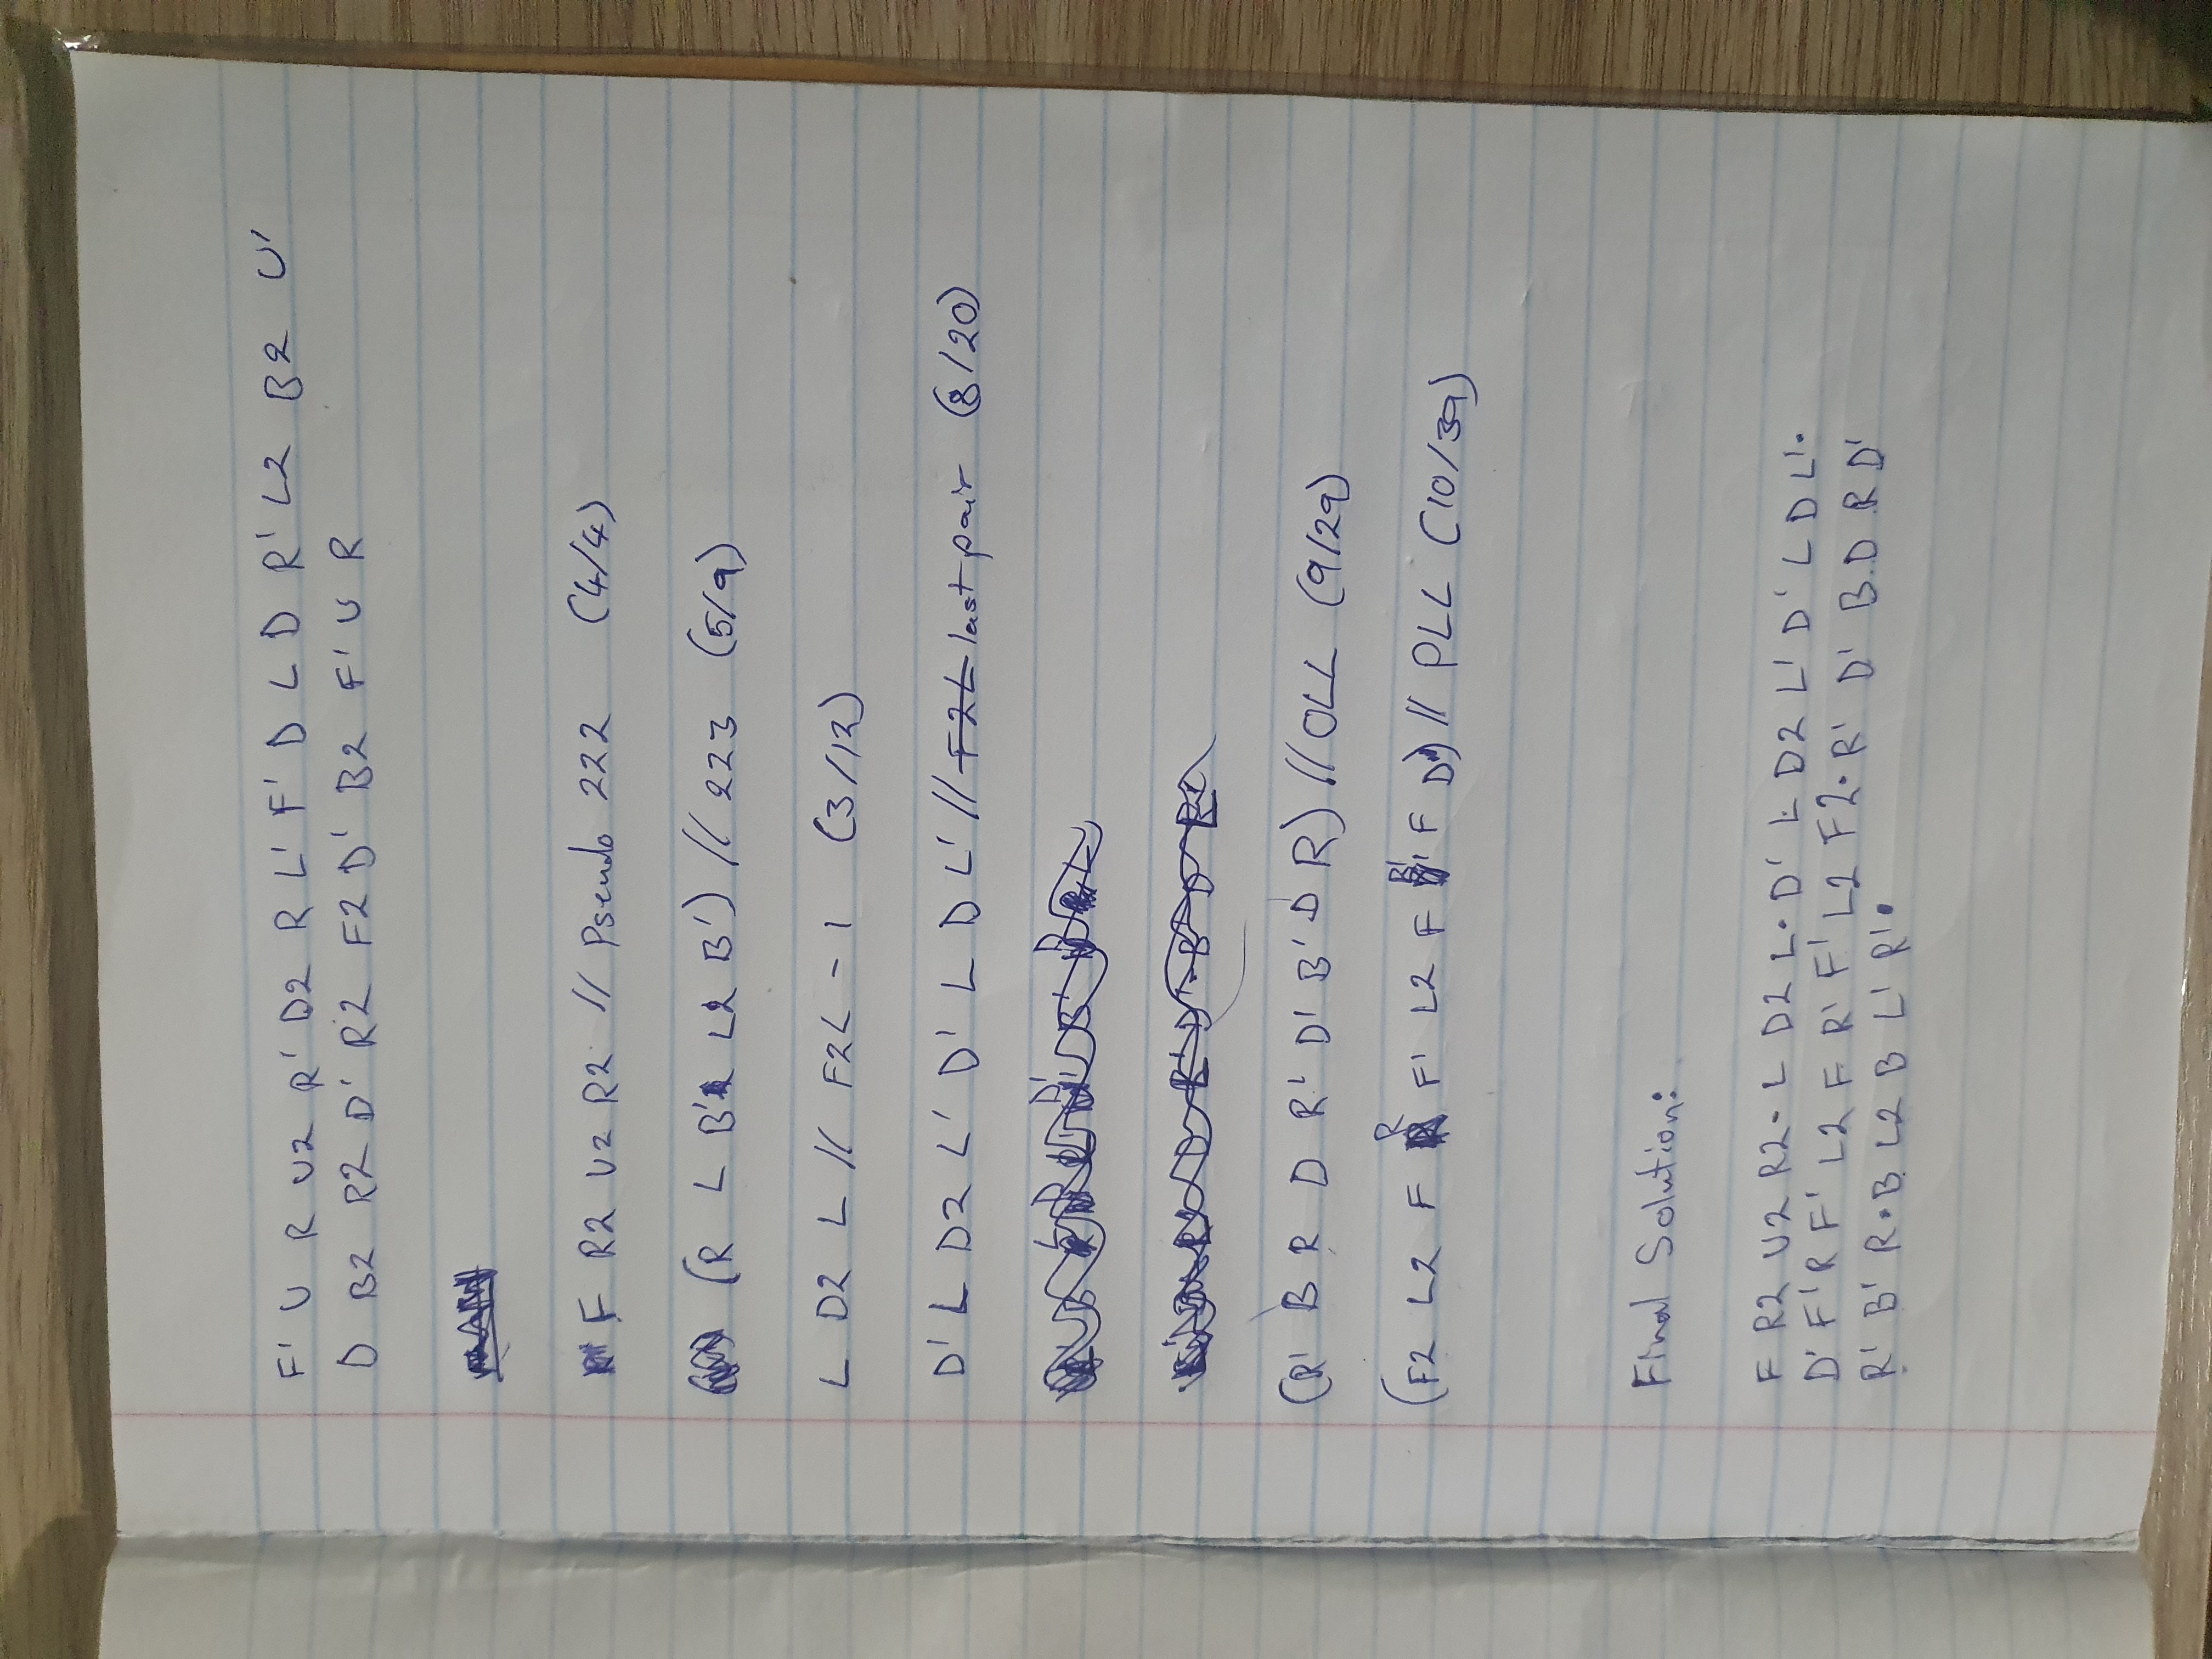 F' U R U2 R' D2 R L' F' D L D R' L2 B2 U'
D B2 R2 D' R2 F2 D' B2 F' U R
F R2 U2 R2 // Pseudo 222 (4/4)
(R L B' L2 B') // 223 (5/9)
L D2 L // F2L - 1 (3/12)
D' L D2 L' D' L D L' // F2L last pair (8/20)
(R' B R D R' D' B' D R) // OLL (9/29)
(F2 L2 F R F' L2 F B' F D) // PLL (10/39)
Final Solution:
F R2 U2 R2 . L D2 L . D' L D2 L' D' L D L' .
D' F' R F' L2 F R' F' L2 F2 . R' D' B D R D'
R' B' R . B L2 B L' R' .